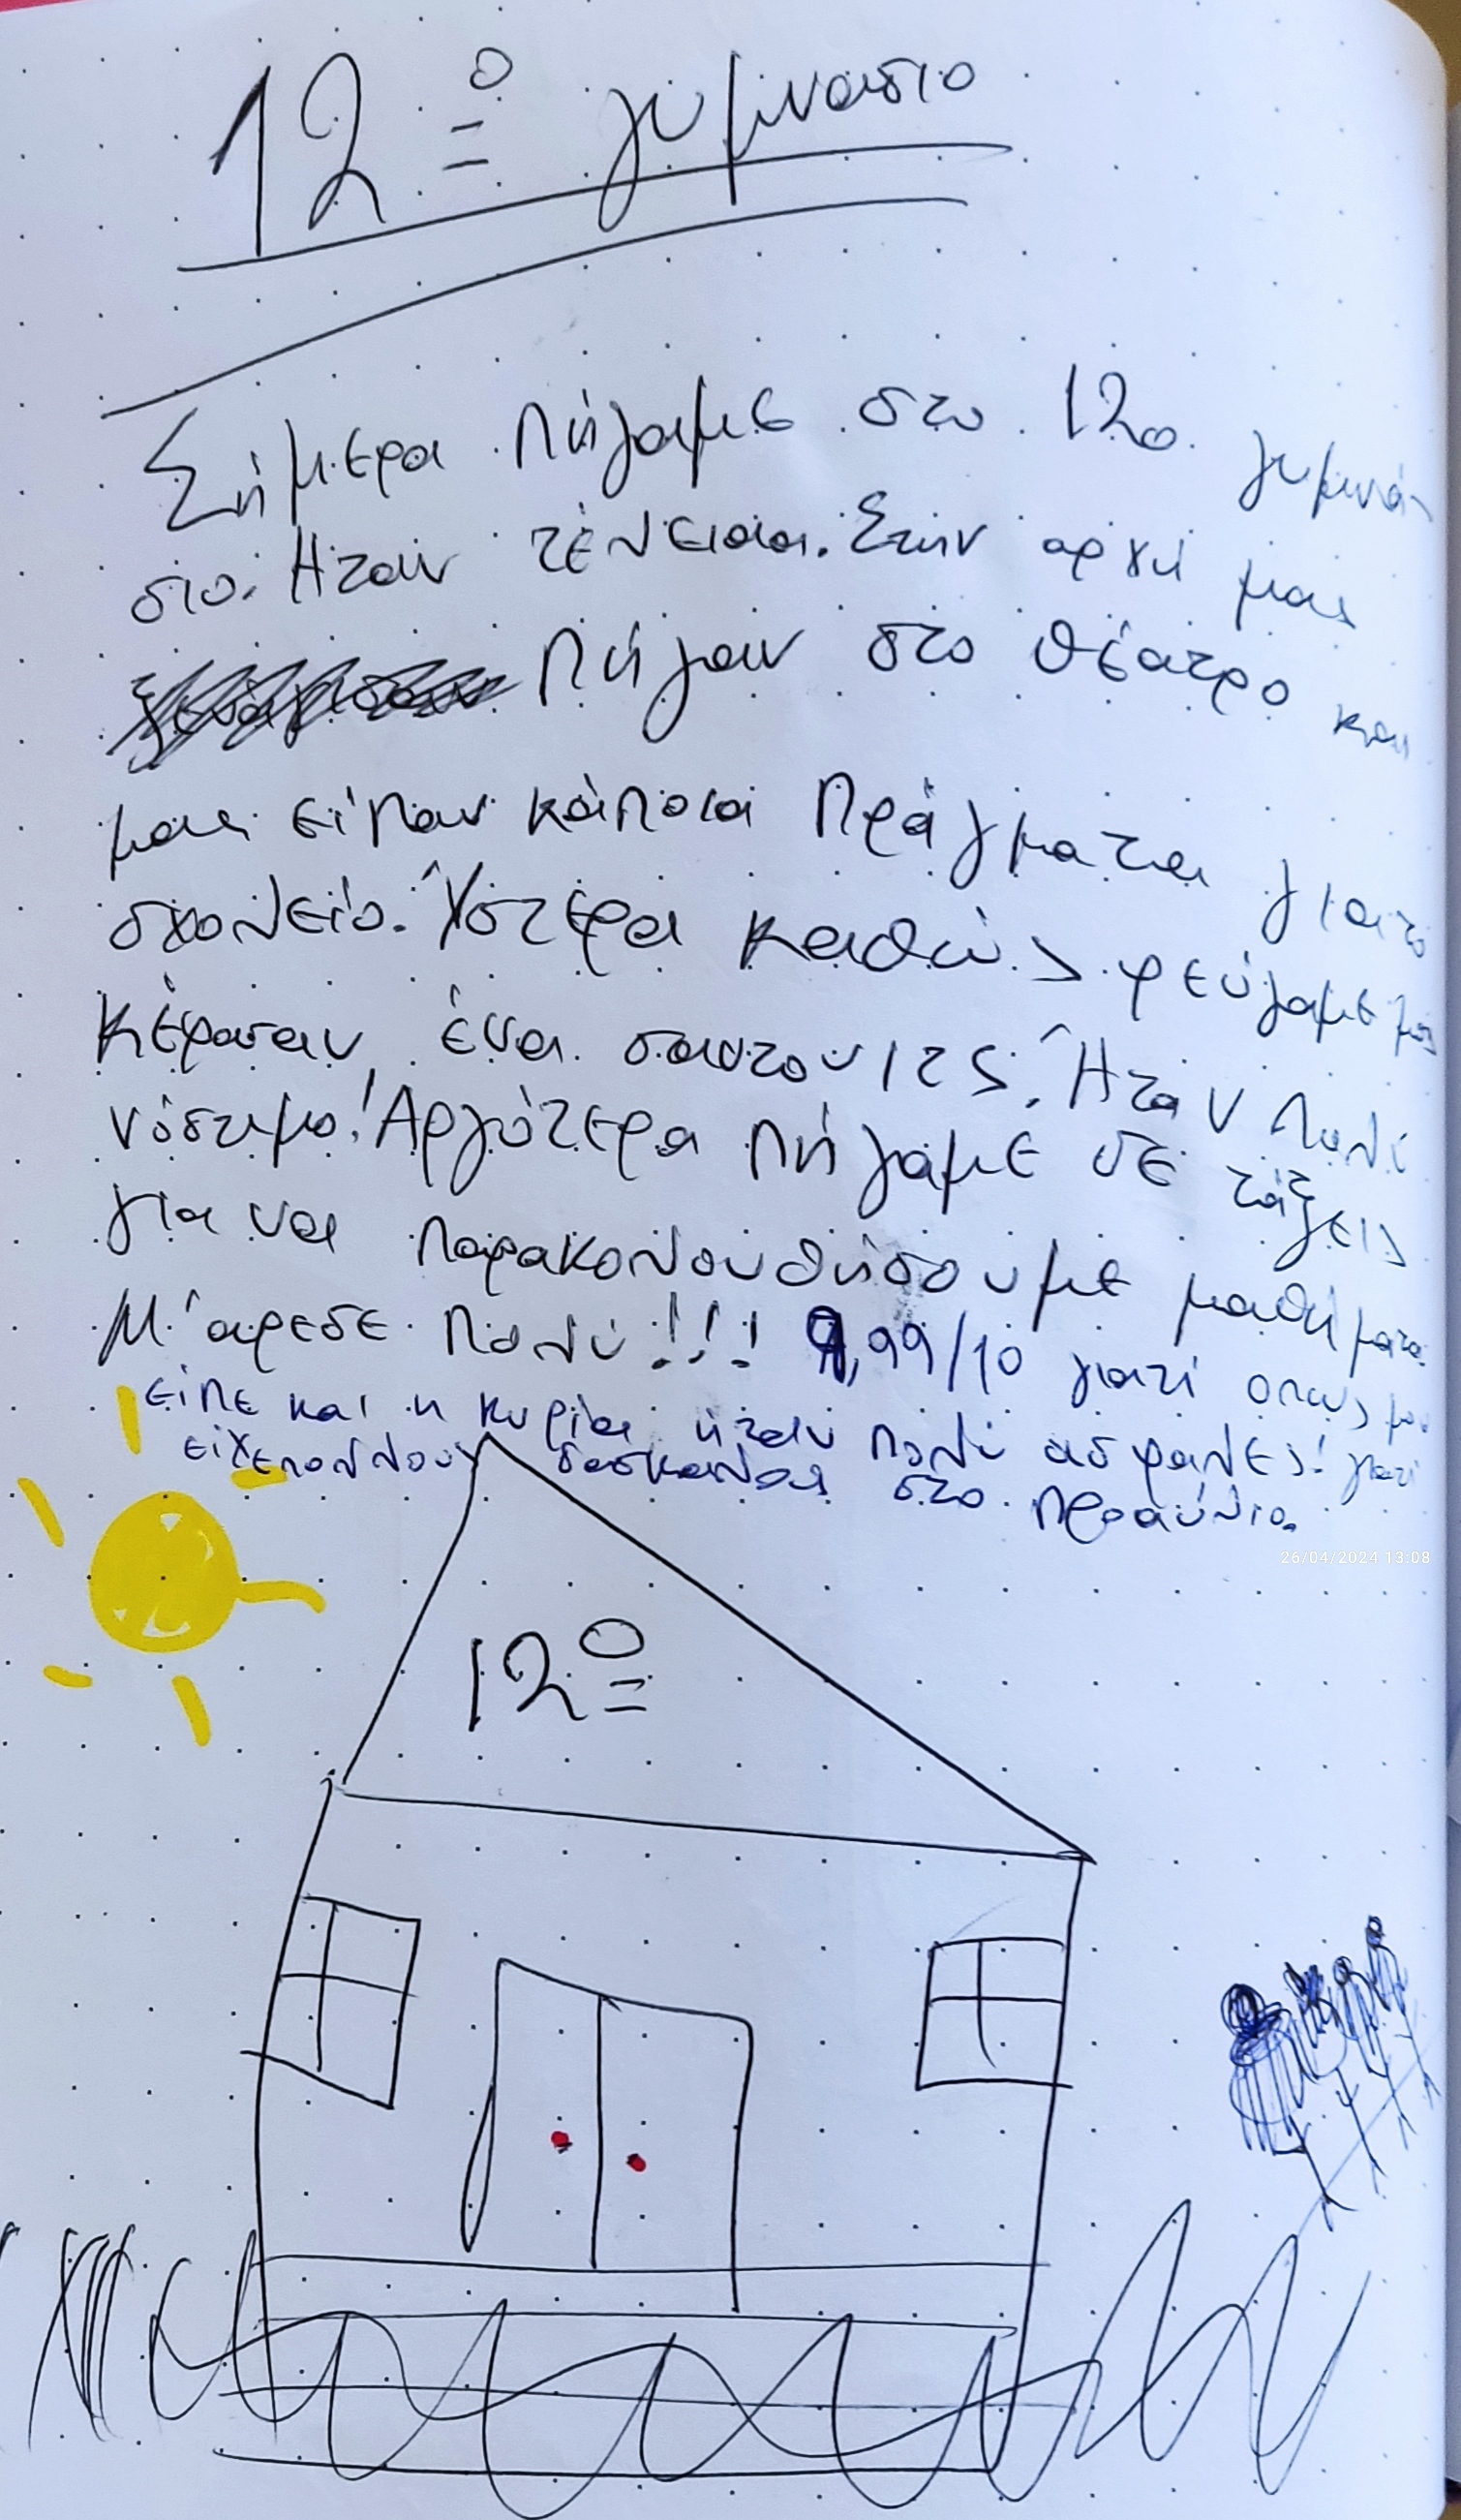 12º γυμνασιο
Σήμερα πήγαμε στο 12ο γυμνά-
σιο. Ήταν τέλεια. Στην αρχή μας
πήγαν στο θέατρο και
μας είπαν κάποια πράγματα για το
σχολείο. Ύστερα καθώς φεύγαμε μας
κέρασαν ένα σαντουιτς. Ήταν πολύ
νόστιμο! Αργότερα πήγαμε σε τάξεις
για να παρακολουθήσουμε μαθήματα.
Μ'άρεσε πολύ!!! 9,99/10 γιατί οπως μου
είπε και η κυρία ήταν πολύ ασφαλές! γιατί
είχε πολλούς δασκάλους στο προαύλιο.
26/04/2024 13:08
12º